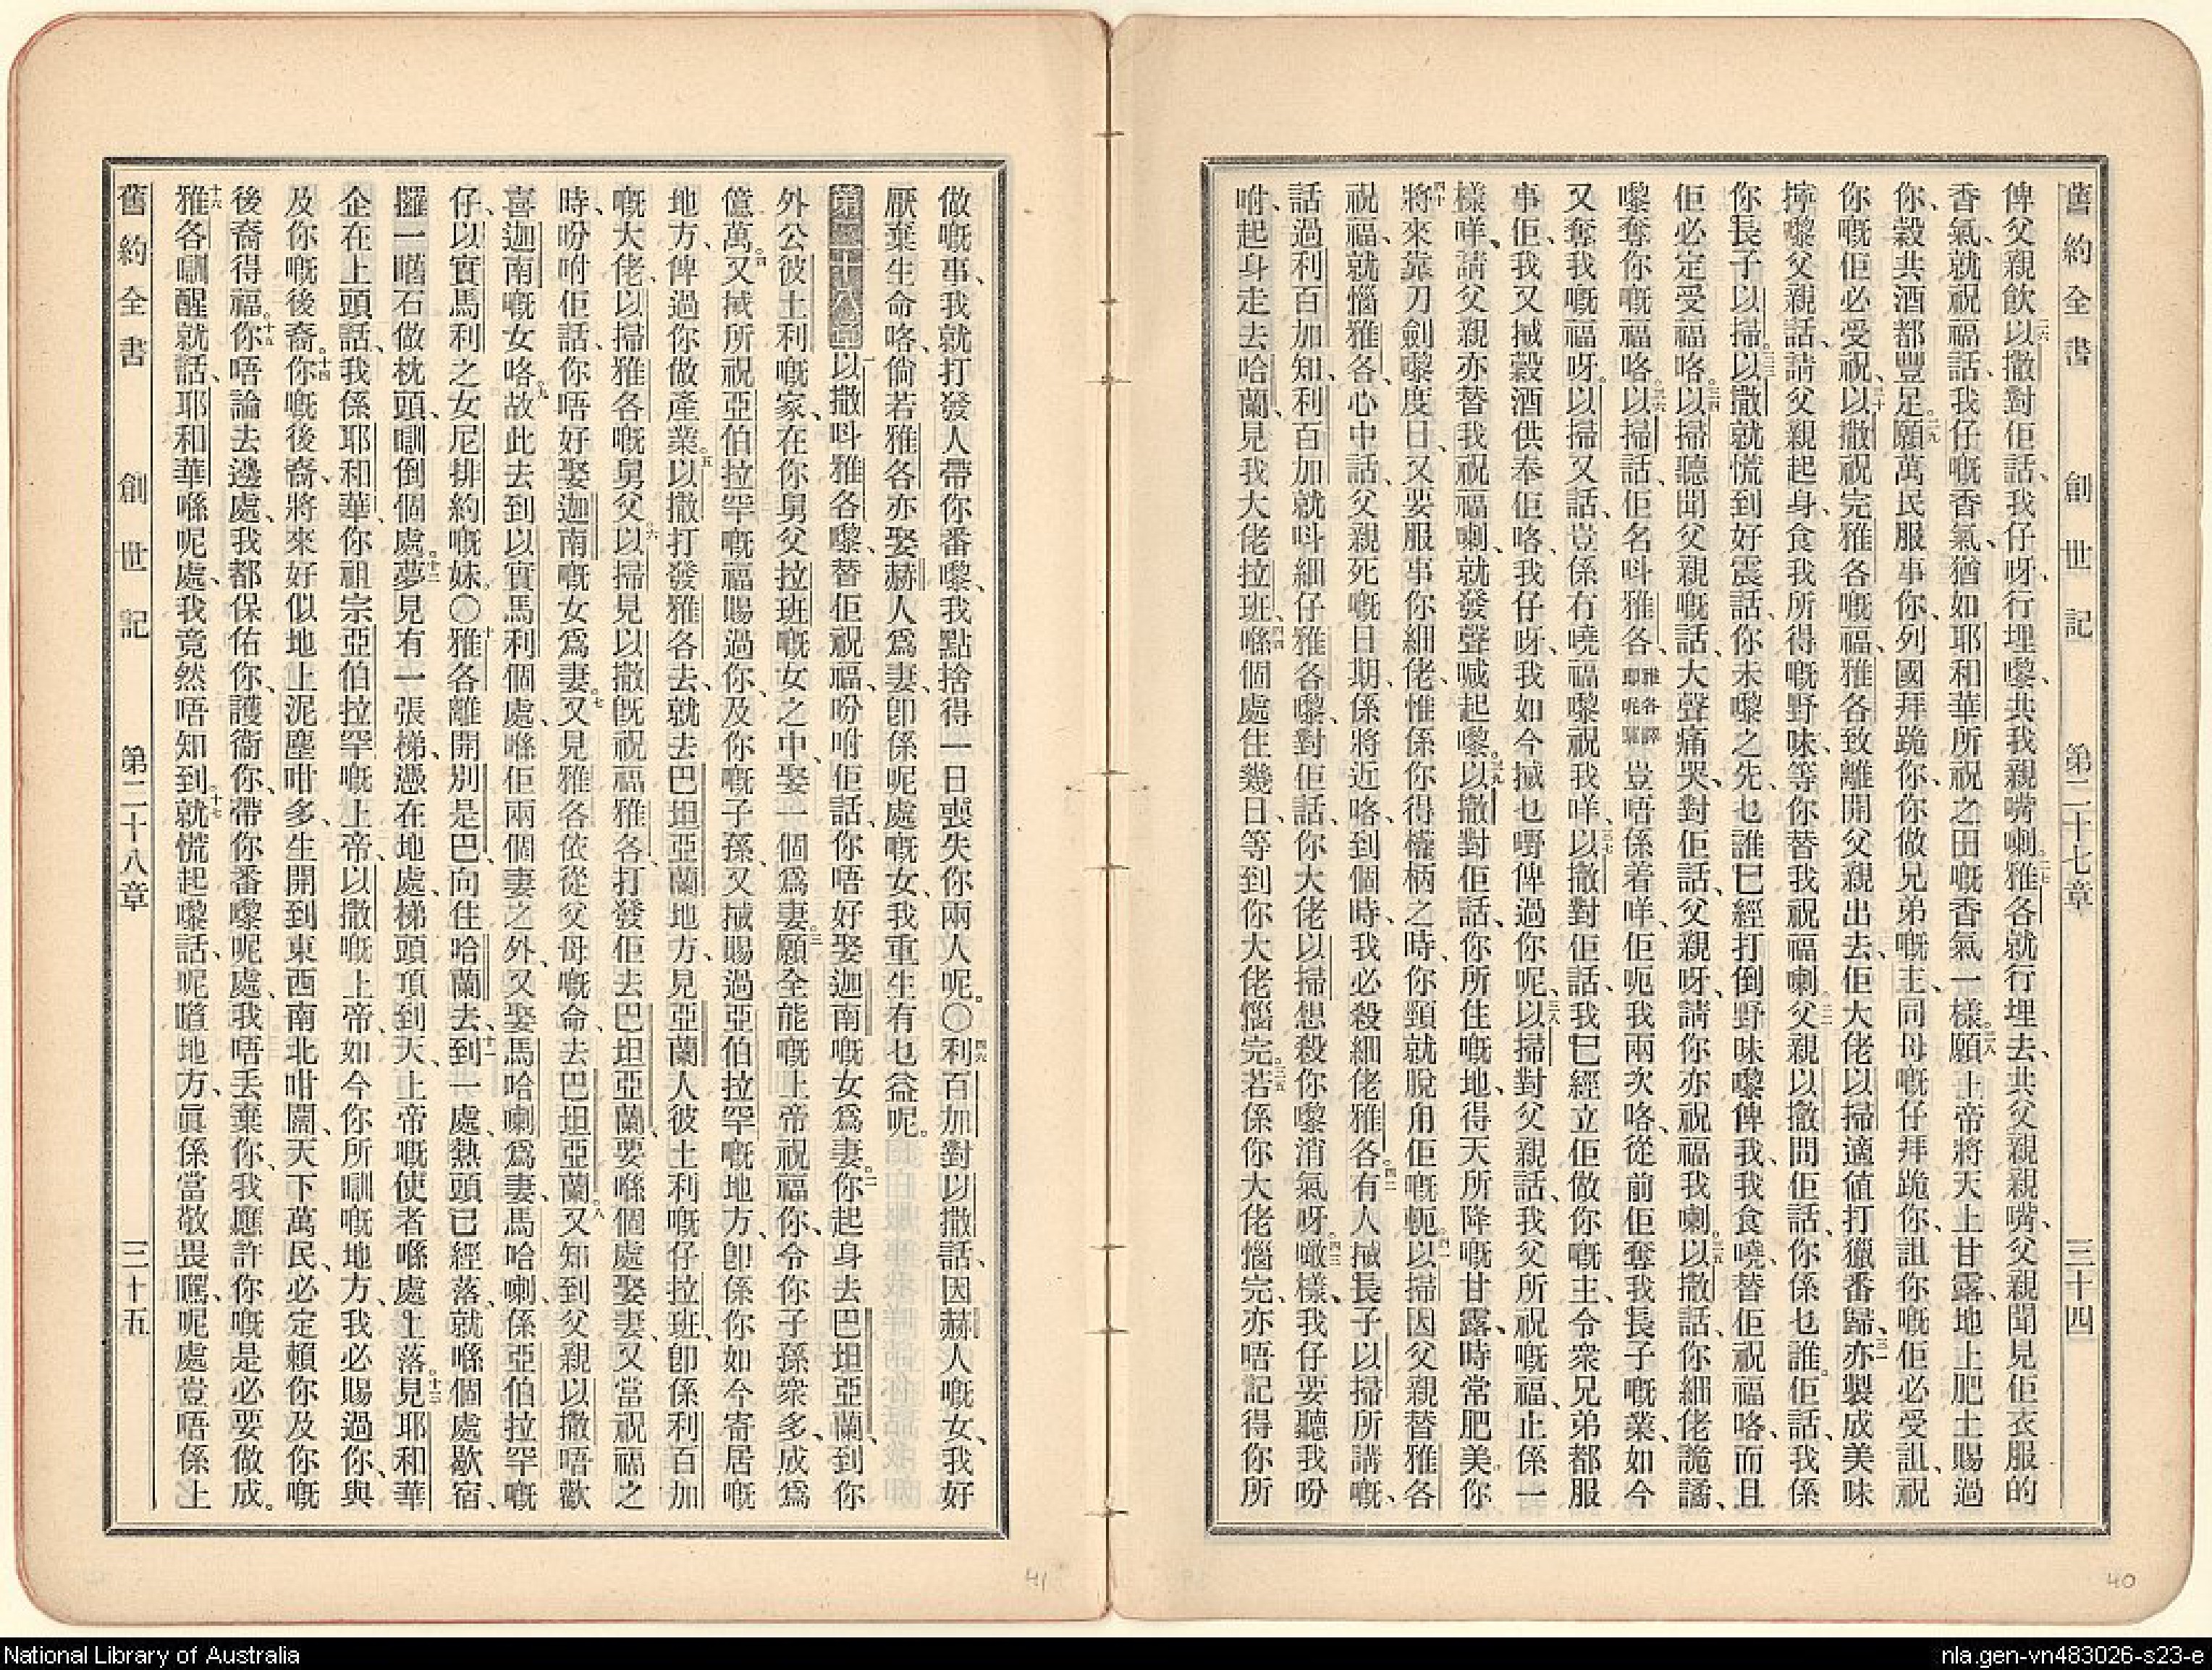 舊約全書 創世記 第二十七章 三十四
俾父親飲、二六以撒對佢話、我仔呀、行埋嚟、共我親嘴喇。二七雅各就行埋去、共父親親嘴、父親聞見佢衣服的
香氣、就祝福話、我仔嘅香氣、猶如耶和華所祝之田嘅香氣一樣。二八願上帝將天上甘露、地上肥土賜過
你、穀共酒都豐足。二九願萬民服事你、列國拜跪你、你做兄弟嘅主、同母嘅仔拜跪你、詛你嘅佢必受詛、祝
你嘅佢必受祝。三十以撒祝完雅各嘅福、雅各致離開父親出去、佢大佬以掃適值打獵番歸、三一亦製成美味
擰嚟父親話、請父親起身、食我所得嘅野味、等你替我祝福喇。三二父親以撒問佢話、你係乜誰。佢話、我係
你長子以掃。三三以撒就慌到好震話、你未嚟之先、乜誰已經打倒野味嚟俾我、我食嘵、替佢祝福咯、而且
佢必定受福咯。三四以掃聽聞父親嘅話、大聲痛哭、對佢話、父親呀、請你亦祝福我喇。三五以撒話、你細佬詭譎、
嚟奪你嘅福咯。三六以掃話、佢名呌雅各、雅各譯卽呃騙豈唔係着咩、佢呃我兩次咯、從前佢奪我長子嘅業、如今
又奪我嘅福呀。以掃又話、豈係冇嘵福嚟祝我咩。三七以撒對佢話、我已經立佢做你嘅主、令衆兄弟都服
事佢、我又摵穀酒供奉佢咯、我仔呀、我如今摵乜嘢俾過你呢。三八以掃對父親話、我父所祝嘅福、止係一
樣咩、請父親亦替我祝福喇、就發聲喊起嚟。三九以撒對佢話、你所住嘅地、得天所降嘅甘露、時常肥美。你
四十將來靠刀劍嚟度日、又要服事你細佬、惟係你得權柄之時、你頸就脫甩佢嘅軛。四一以掃因父親替雅各
祝福、就惱雅各、心中話、父親死嘅日期、係將近咯、到個時、我必殺細佬雅各。四二有人摵長子以掃所講嘅
話過利百加知、利百加就呌細仔雅各嚟、對佢話、你大佬以掃想殺你嚟消氣呀。四三噉樣、我仔要聽我吩
咐、起身走去哈蘭、見我大佬拉班、四四喺個處住幾日、等到你大佬惱完。四五若係你大佬惱完、亦唔記得你所
做嘅事、我就打發人帶你番嚟、我點捨得一日喪失你兩人呢。〇四六利百加對以撒話、因赫人嘅女、我好
厭棄生命咯、倘若雅各亦娶赫人爲妻、卽係呢處嘅女、我重生有乜益呢。
第二十八章 一以撒呌雅各嚟、替佢祝福、吩咐佢話、你唔好娶迦南嘅女爲妻。二你起身去巴坦亞蘭、到你
外公彼土利嘅家、在你舅父拉班嘅女之中、娶一個爲妻。三願全能嘅上帝祝福你、令你子孫衆多、成爲
億萬。四又摵所祝亞伯拉罕嘅福賜過你、及你嘅子孫、又摵賜過亞伯拉罕嘅地方、卽係你如今寄居嘅
地方、俾過你做產業。五以撒打發雅各去、就去巴坦亞蘭地方、見亞蘭人彼土利嘅仔拉班、卽係利百加
嘅大佬、以掃雅各嘅舅父。六以掃見以撒旣祝福雅各、打發佢去巴坦亞蘭、要喺個處娶妻、又當祝福之
時、吩咐佢話、你唔好娶迦南嘅女爲妻。七又見雅各依從父母嘅命、去巴坦亞蘭。八又知到父親以撒唔歡
喜迦南嘅女咯、九故此去到以實馬利個處、喺佢兩個妻之外、又娶馬哈喇爲妻、馬哈喇、係亞伯拉罕嘅
仔、以實馬利之女、尼排約嘅妹。〇十雅各離開別是巴、向住哈蘭去、十一到一處、熱頭已經落、就喺個處歇宿、
攞一嚿石做枕頭、瞓倒個處。十二夢見有一張梯、憑在地處、梯頭頂到天、上帝嘅使者喺處上落。十三見耶和華
企在上頭、話、我係耶和華、你祖宗亞伯拉罕嘅上帝、以撒嘅上帝、如今你所瞓嘅地方、我必賜過你、與
及你嘅後裔。十四你嘅後裔、將來好似地上泥塵咁多、生開到東西南北咁闊、天下萬民、必定賴你及你嘅
後裔得福。十五你唔論去邊處、我都保佑你、護衞你、帶你番嚟呢處、我唔丟棄你、我應許你嘅是必要做成。
十六雅各瞓醒就話、耶和華喺呢處、我竟然唔知到。十七就慌起嚟話、呢嗱地方、眞係當敬畏嚹、呢處豈唔係上
舊約全書 創世記 第二十八章 三十五
41
40
National Library of Australia
nla.gen-vn483026-s23-e